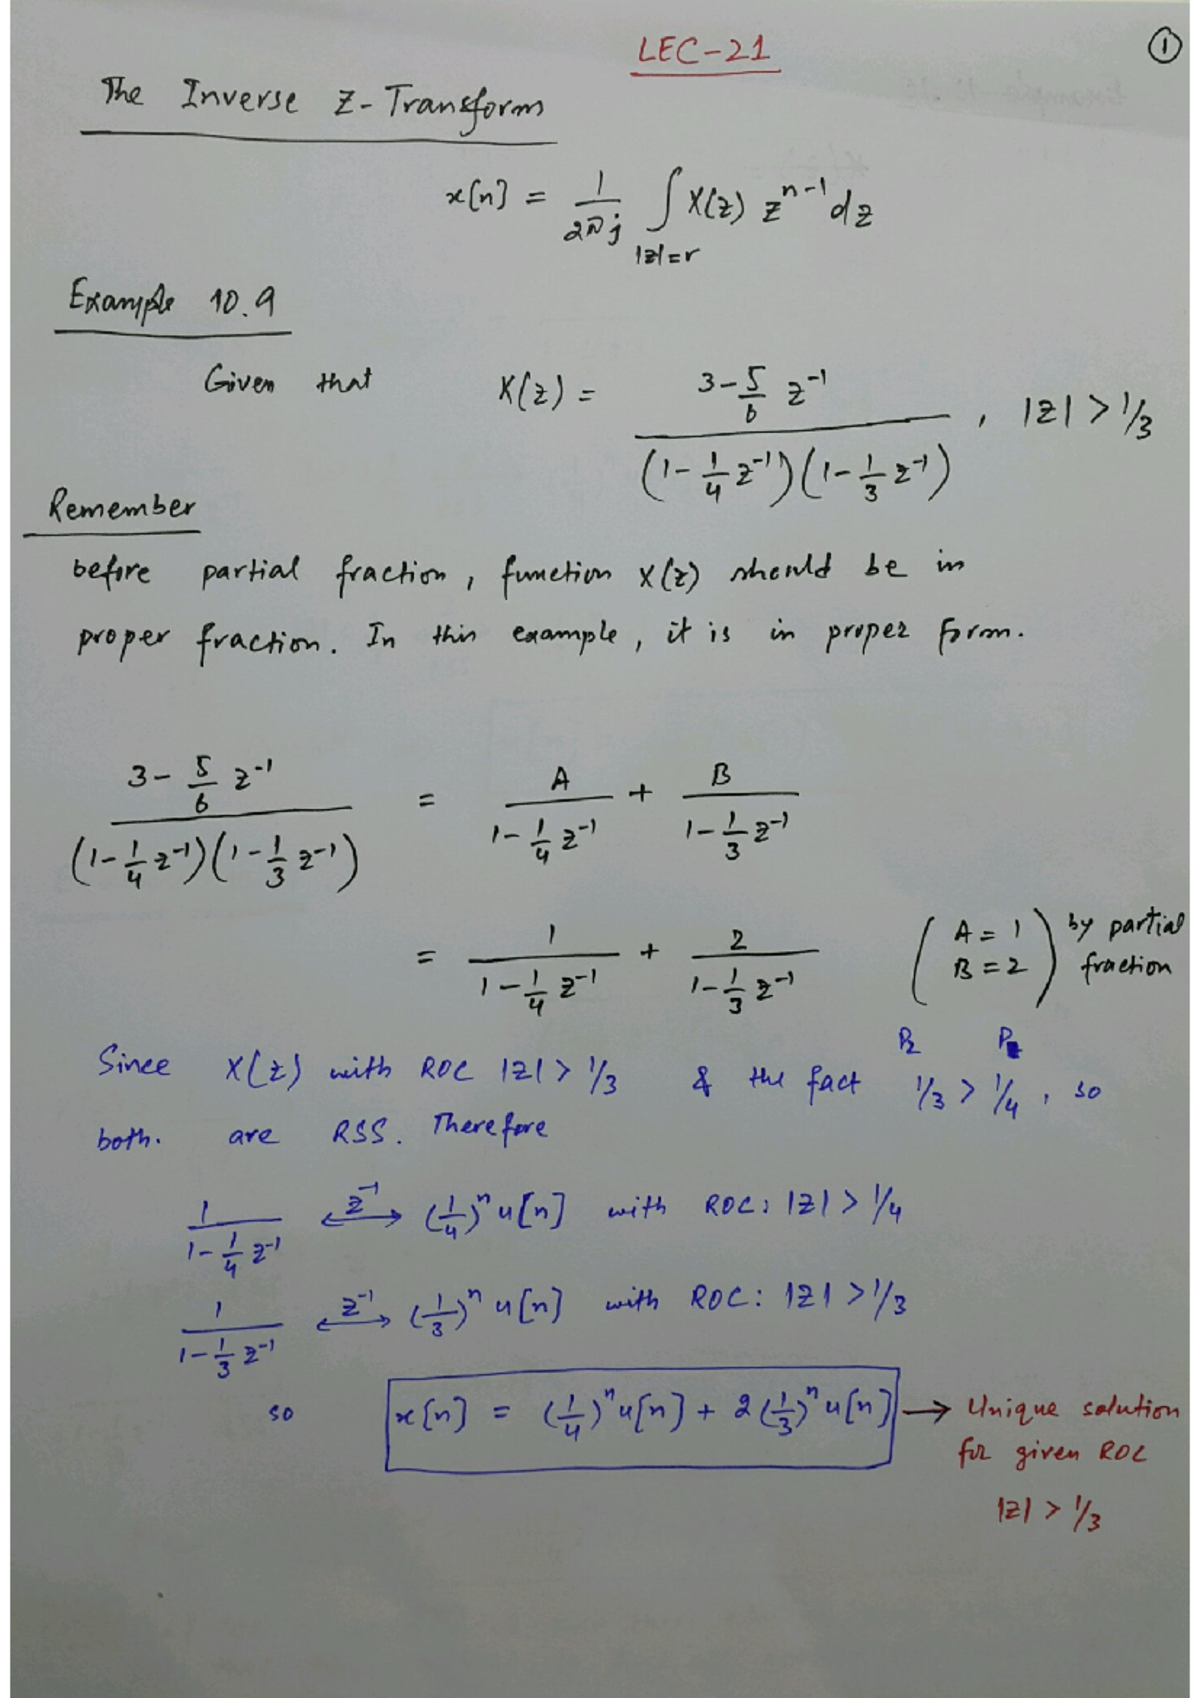 LEC-21
①
The Inverse Z-Transform
x[n] = 1/2πj ∫|z|=r X(z) z^{n-1} dz
Example 10.9
Given that X(z) = (3 - 5/6 z^{-1}) / ((1 - 1/4 z^{-1})(1 - 1/3 z^{-1})) , |z| > 1/3
Remember
before partial fraction, function X(z) should be in
proper fraction. In this example, it is in proper form.
(3 - 5/6 z^{-1}) / ((1 - 1/4 z^{-1})(1 - 1/3 z^{-1})) = A / (1 - 1/4 z^{-1}) + B / (1 - 1/3 z^{-1})
= 1 / (1 - 1/4 z^{-1}) + 2 / (1 - 1/3 z^{-1}) (A = 1 B = 2) by partial fraction
Since X(z) with ROC |z| > 1/3 & the fact 1/3 > 1/4, so
both. are RSS. Therefore
1 / (1 - 1/4 z^{-1}) ⟷^{z^{-1}} (1/4)^n u[n] with ROC: |z| > 1/4
1 / (1 - 1/3 z^{-1}) ⟷^{z^{-1}} (1/3)^n u[n] with ROC: |z| > 1/3
so x[n] = (1/4)^n u[n] + 2 (1/3)^n u[n] → Unique solution
for given ROC
|z| > 1/3